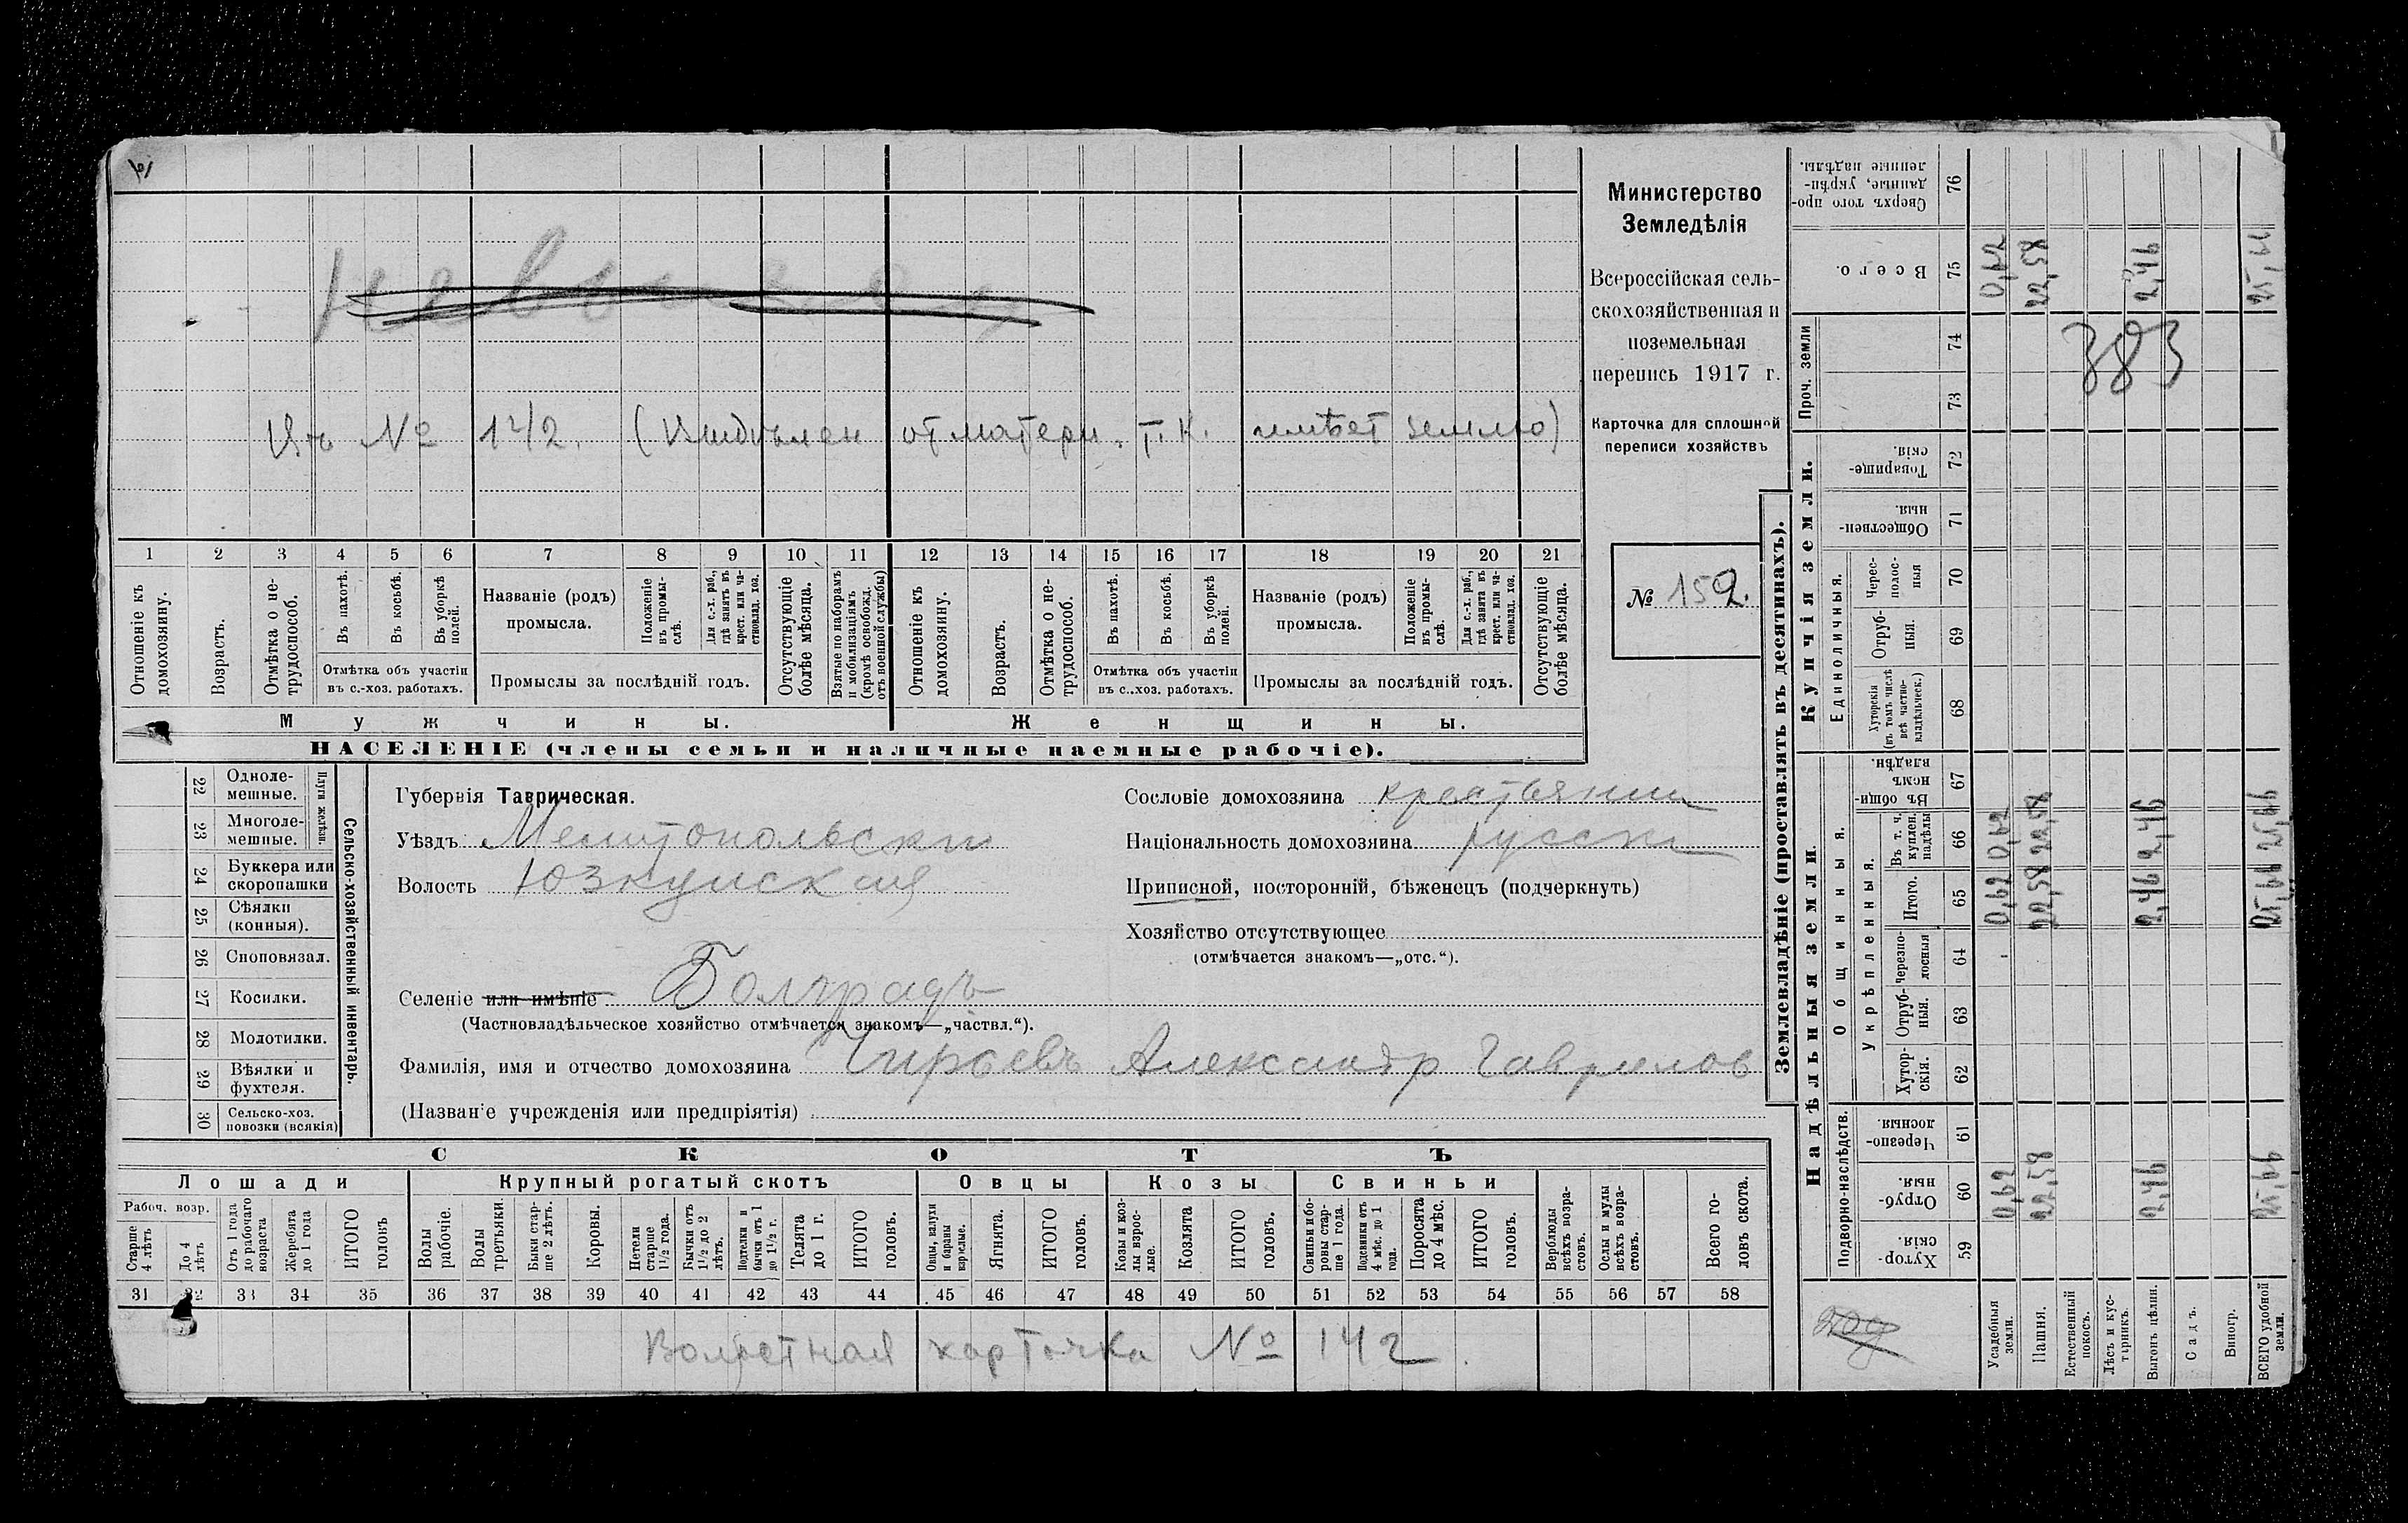 Министерство
Земледѣлія
Всероссійская сель-
скохозяйственная и
поземельная
перепись 1917 г.
Карточка для сплошной
переписи хозяйствъ
№ 152.
Къ № 142. (Выдѣлен от матери. т. к. имѣет землю)
1 2 3 4 5 6 7 8 9 10 11 12 13 14 15 16 17 18 19 20 21
Отношеніе къ домохозяину.
Возрастъ.
Отмѣтка о не-трудоспособ.
Въ пахотѣ.
Въ косьбѣ.
Въ уборкѣ полей.
Отмѣтка объ участіи въ с.-хоз. работахъ.
Названіе (родъ) промысла.
Положеніе въ промы-слѣ.
Для с.-х. раб., гдѣ занятъ въ крест. или ча-стновлад. хоз.
Промыслы за послѣдній годъ.
Отсутствующіе болѣе мѣсяца.
Взятые по наборамъ и мобилизаціямъ (кромѣ освобожд. отъ военной службы)
Отношеніе къ домохозяину.
Возрастъ.
Отмѣтка о не-трудоспособ.
Въ пахотѣ.
Въ косьбѣ.
Въ уборкѣ полей.
Отмѣтка объ участіи въ с.-хоз. работахъ.
Названіе (родъ) промысла.
Положеніе въ промы-слѣ.
Для с.-х. раб., гдѣ занята въ крест. или ча-стновлад. хоз.
Промыслы за послѣдній годъ.
Отсутствующіе болѣе мѣсяца.
Мужчины. Женщины.
НАСЕЛЕНІЕ (члены семьи и наличные наемные рабочіе).
Сельско-хозяйственный инвентарь.
Плуги желѣзн.
22 Одноле-мешные.
23 Многоле-мешные.
24 Буккера или скоропашки
25 Сѣялки (конныя).
26 Сноповязал.
27 Косилки.
28 Молотилки.
29 Вѣялки и фухтеля.
30 Сельско-хоз. повозки (всякія)
Губернія Таврическая.
Уѣздъ Мелитопольски
Волость Юзкуйская
Селеніе или имѣніе Болградъ
(Частновладѣльческое хозяйство отмѣчается знакомъ—„частвл.“).
Фамилія, имя и отчество домохозяина Чираевъ Александр Гаврилов
(Названіе учрежденія или предпріятія)
Сословіе домохозяина крестьянин
Національность домохозяина русски
Приписной, посторонній, бѣженецъ (подчеркнуть)
Хозяйство отсутствующее
(отмѣчается знакомъ—„отс.“).
СКОТЪ
Лошади Крупный рогатый скотъ Овцы Козы Свиньи
Рабоч. возр.
Старше 4 лѣтъ
До 4 лѣтъ
Отъ 1 года до рабочаго возраста
Жеребята до 1 года
ИТОГО головъ
Волы рабочіе.
Волы третьяки.
Быки стар-ше 2 лѣтъ.
Коровы.
Нетели старше 1½ года.
Бычки отъ 1½ до 2 лѣтъ.
Подтелки и бычки отъ 1 до 1½ г.
Телята до 1 г.
ИТОГО головъ.
Овцы, валухи и бараны взрослые.
Ягнята.
ИТОГО головъ.
Козы и коз-лы взрос-лые.
Козлята
ИТОГО головъ.
Свиньи и бо-ровы стар-ше 1 года.
Подсвинки отъ 4 мѣс. до 1 года.
Поросята до 4 мѣс.
ИТОГО головъ.
Верблюды всѣхъ возра-стовъ.
Ослы и мулы всѣхъ возра-стовъ.
Всего го-ловъ скота.
31 32 33 34 35 36 37 38 39 40 41 42 43 44 45 46 47 48 49 50 51 52 53 54 55 56 57 58
Волостная карточка № 142.
Землевладѣніе (проставлять въ десятинахъ).
Надѣльныя земли.
Купчія земли.
Проч. земли
Подворно-наслѣдств.
Общинныя.
Укрѣпленныя.
Единоличныя.
59 Хутор-скія.
60 Отруб-ныя.
61 Черезпо-лосныя.
62 Хутор-скія.
63 Отруб-ныя.
64 Черезпо-лосныя
65 Итого.
66 Въ т. ч. куплен. надѣлы
67 Въ общи-номъ владѣн.
68 Хуторскія (въ томъ числѣ всѣ частно-владѣльческ.)
69 Отруб-ныя.
70 Черес-полос-ныя
71 Обществен-ныя.
72 Товарище-скія.
73
74
75 Всего.
76 Сверхъ того про-данные, укрѣп-ленные надѣлы.
Усадебныя земли. 0,62 0,62 0,62 0,62
Пашня. 22,58 22,58 22,58 22,58
Естественный покосъ.
Лѣсъ и кус-тарникъ.
Выгонъ цѣлин. 2,46 2,46 2,46 2,46
Садъ.
Виногр.
ВСЕГО удобной земли. 25,66 25,66 25,66 25,66
383